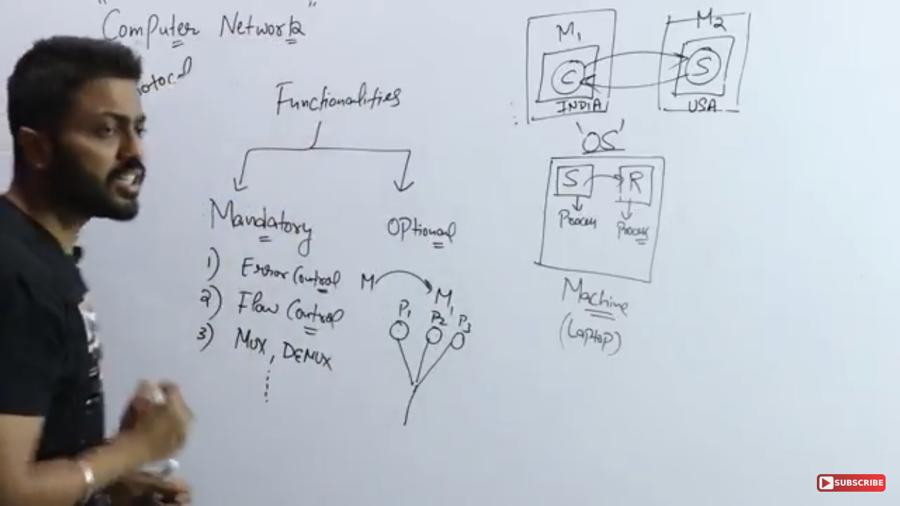 "Computer Network"
otocol
Functionalities
Mandatory
1) Error Control
2) Flow Control
3) Mux, DEMUX
Optional
M
M1
P1
P2
P3
M1
C
INDIA
M2
S
USA
'OS'
S
R
Process
Process
Machine
(Laptop)
SUBSCRIBE